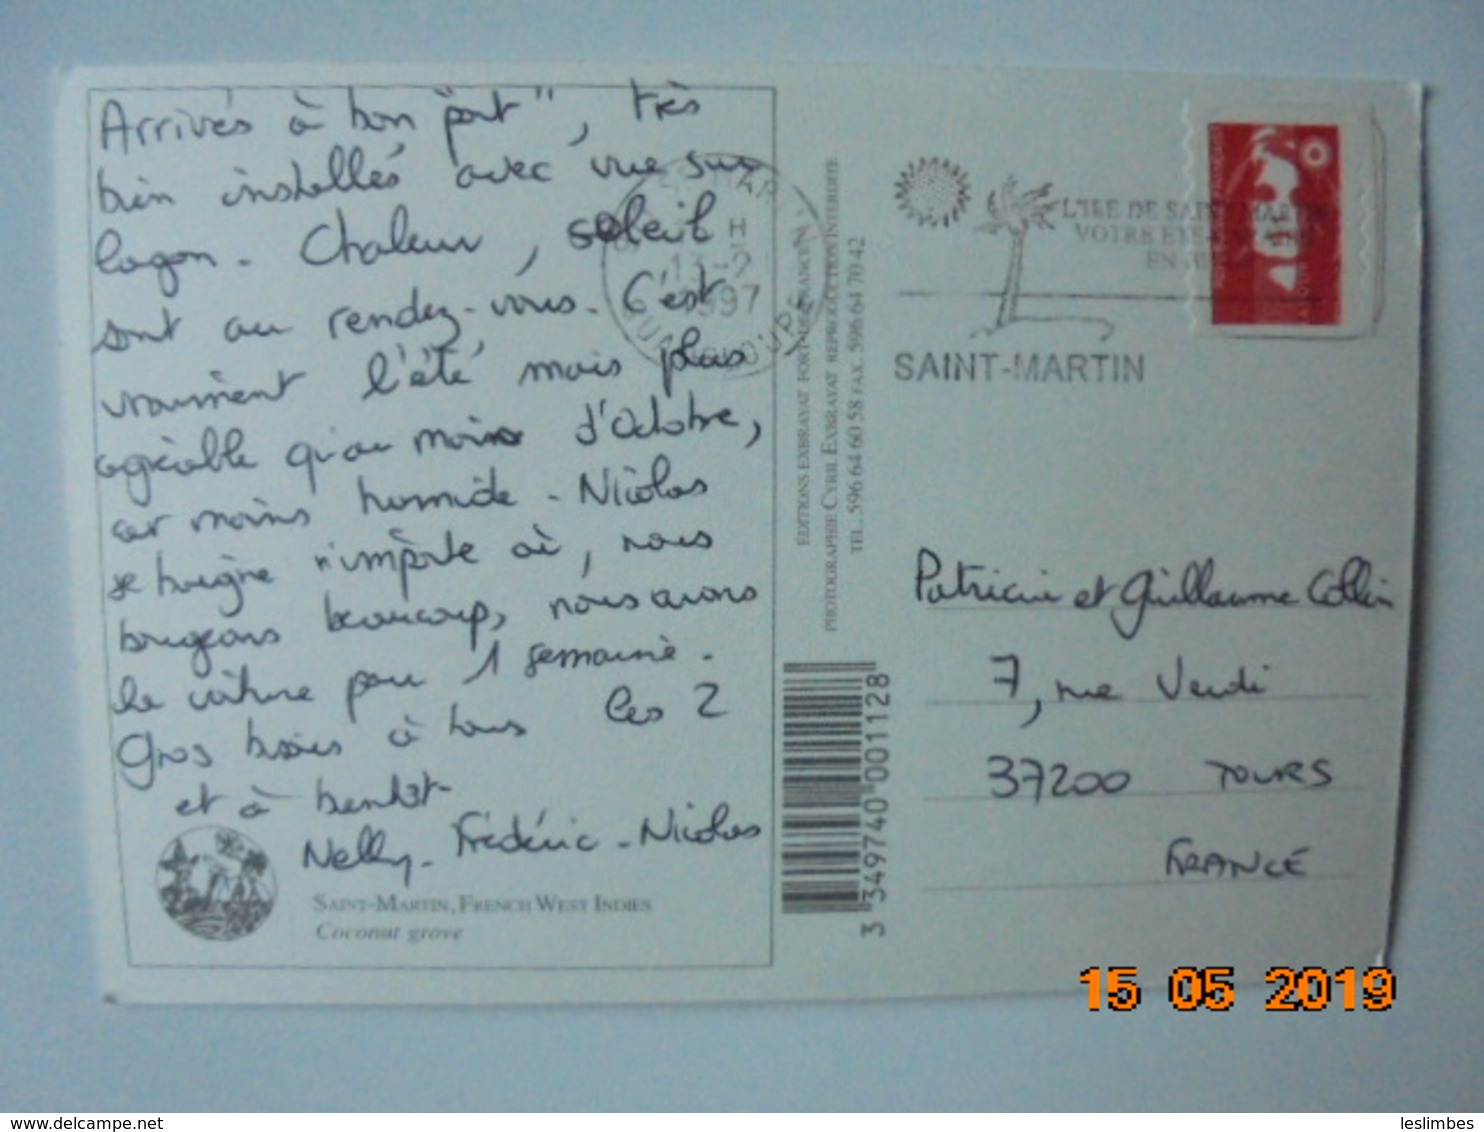 Arrivés à bon "port", très
bien installés avec vue sur
lagon. Chaleur, soleil
sont au rendez-vous. C'est
vraiment l'été mais plus
agréable qu'au mois d'Octobre,
car moins humide - Nicolas
se baigne n'importe où, nous
bougeons beaucoup, nous avons
la voiture pour 1 semaine.
Gros bisous à tous les 2
et à bientôt
Nelly - Frédéric - Nicolas
SAINT-MARTIN, FRENCH WEST INDIES
Coconut grove
H
13-2
1997
GUADELOUPE
ÉDITIONS EXBRAYAT FORT-DE-FRANCE
PHOTOGRAPHIE CYRIL EXBRAYAT REPRODUCTION INTERDITE
TEL. 596 64 60 58 FAX. 596 64 70 42
3 349740 001128
L'ILE DE SAINT MARTIN
VOTRE
EN
SAINT-MARTIN
Patricia et Guillaume Collin
7, rue Verdi
37200 TOURS
FRANCE
15 05 2019
https://www.delcampe.net
leslimbes